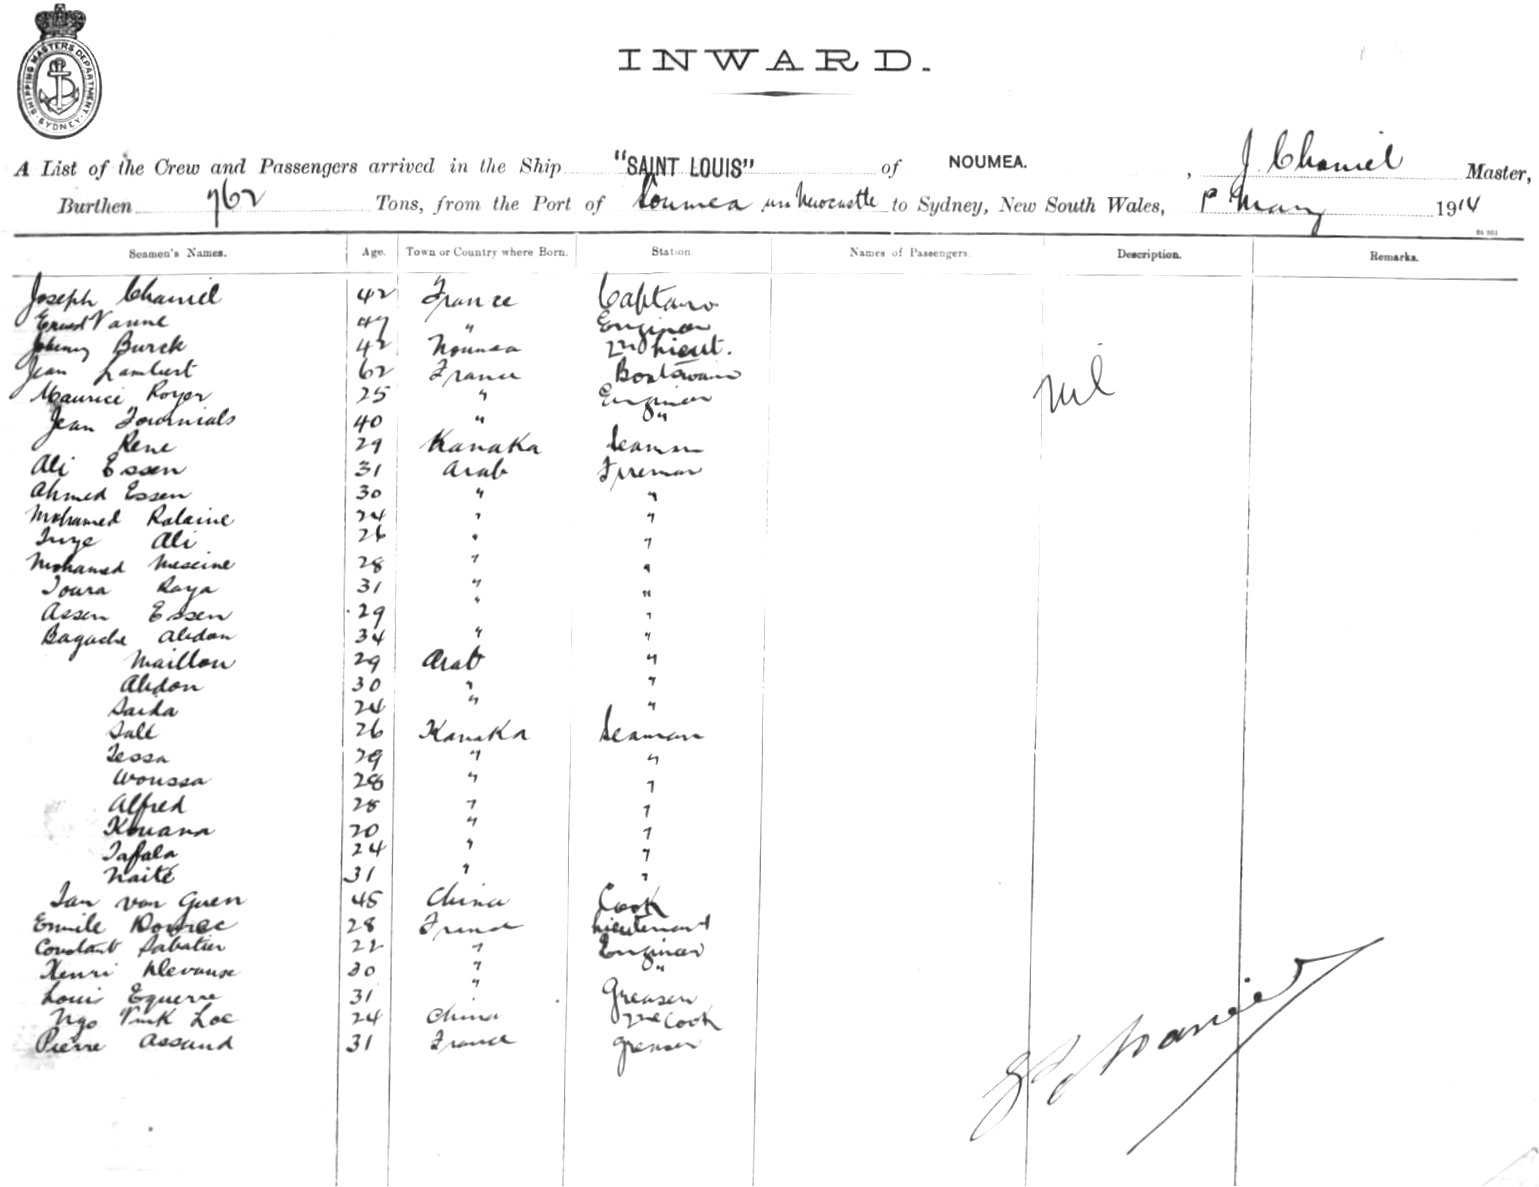 SHIPPING MASTERS DEPARTMENT. SYDNEY.
INWARD.
A List of the Crew and Passengers arrived in the Ship "SAINT LOUIS" of NOUMEA. , J. Chaniel Master,
Burthen 762 Tons, from the Port of Noumea via Newcastle to Sydney, New South Wales, 1st May 1914
Seamen's Names. Age. Town or Country where Born. Station. Names of Passengers. Description. Remarks.
Joseph Chaniel 42 France Captain
Ernest Vanne 47 " Engineer
Johnny Burck 42 Noumea 2nd Lieut.
Jean Lambert 62 France Boatswain
Maurice Royer 25 " Engineer
nil
Jean Tournials 40 " Do "
Rene 29 Kanaka Seaman
Ali Essen 31 Arab Fireman
Ahmed Essen 30 " "
Mohamed Ralaine 24 " "
Ali 26 " "
Mohamed Messine 28 " "
Toura Raya 31 " "
Assen Essen 29 " "
Bagache Abdon 34 " "
Maillon 29 Arab "
Abdon 30 " "
Saida 24 " "
Sale 26 Kanaka Seaman
Tessa 29 " "
Woussa 28 " "
Alfred 28 " "
Kouana 20 " "
Tafala 24 " "
Naité 31 " "
Tan van Guen 45 China Cook
Emile 28 France Lieutenant
Constant Sabatier 22 " Engineer
Henri 30 " Do "
Louis Equerre 31 " Greaser
Ngo Vink Loc 24 China 2nd Cook
Pierre Assaud 31 France Greaser
Chaniel